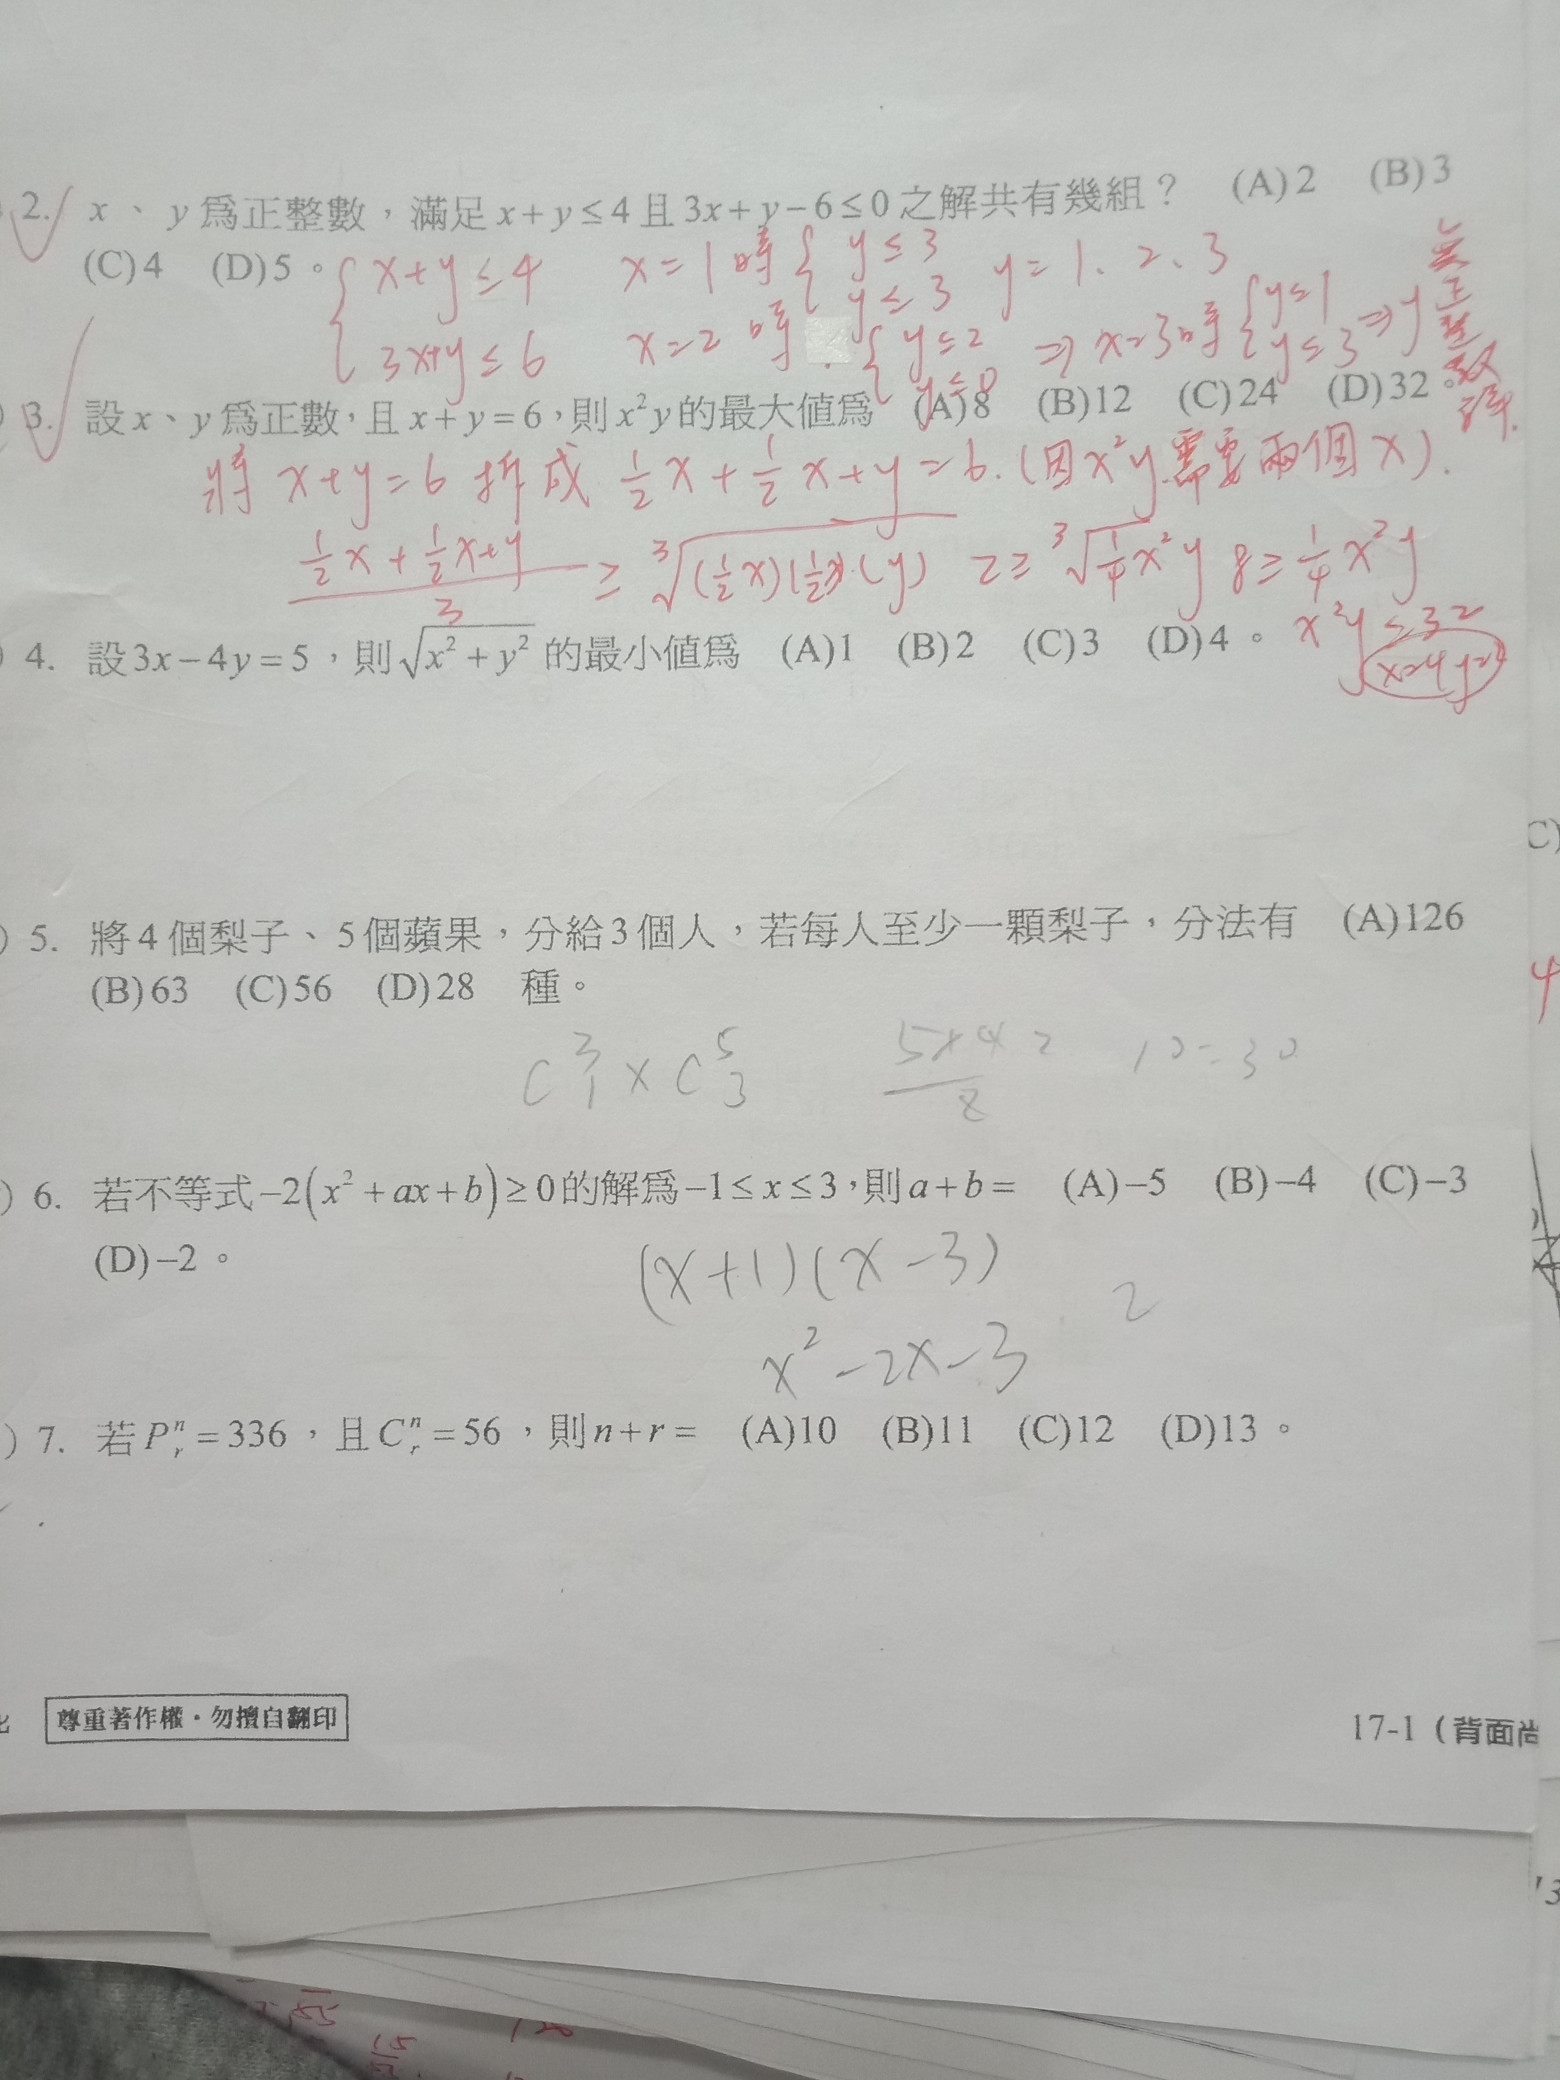 2. x、y為正整數，滿足x+y≤4且3x+y−6≤0之解共有幾組？ (A)2 (B)3
(C)4 (D)5。
{ x+y≤4 x=1時 { y≤3 y=1、2、3
3x+y≤6 y≤3
x=2時 { y≤2 ⇒ x=3時 { y≤1
y≤3 ⇒ y無正整數解.
3. 設x、y為正數，且x+y=6，則x²y的最大值為 (A)8 (B)12 (C)24 (D)32。
將 x+y=6 拆成 1/2 x + 1/2 x+y=6.(因x²y需要兩個x).
(1/2 x + 1/2 x+y)/3 ≥ ³√((1/2 x)(1/2 x)·(y)) 2≥ ³√(1/4 x²y) 8≥ 1/4 x²y
x²y≤32
4. 設3x−4y=5，則√(x²+y²)的最小值為 (A)1 (B)2 (C)3 (D)4。
x=4
5. 將4個梨子、5個蘋果，分給3個人，若每人至少一顆梨子，分法有 (A)126
(B)63 (C)56 (D)28 種。
C³₁×C⁵₃
6. 若不等式−2(x²+ax+b)≥0的解為−1≤x≤3，則a+b= (A)−5 (B)−4 (C)−3
(D)−2。
(x+1)(x−3)
2
x²−2x−3
7. 若Pⁿᵣ=336，且Cⁿᵣ=56，則n+r= (A)10 (B)11 (C)12 (D)13。
尊重著作權·勿擅自翻印
17-1（背面尚